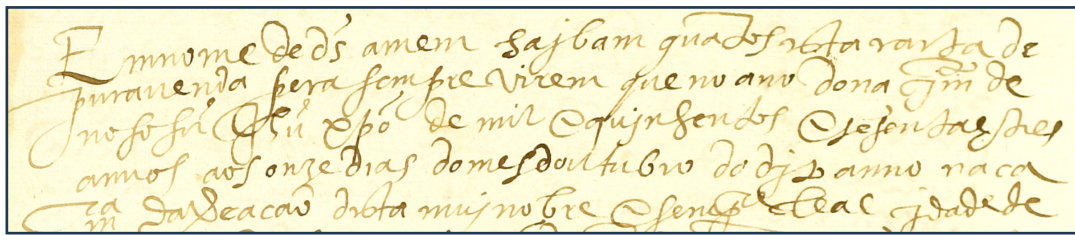 Em nome de ds amem saibam quãtos esta carta de
pura venda pera sempre virem que no ano do nacimẽ de
noso sñr Jhũ xpõ de mil e quinhentos e sesenta e tres
annos aos onze dias do mes doutubro do dito anno na ca
da Veacaõ desta mui nobre e senpr leal cidade de